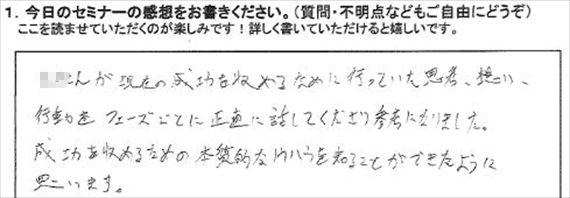 1. 今日のセミナーの感想をお書きください。(質問・不明点などもご自由にどうぞ)
ここを読ませていただくのが楽しみです!詳しく書いていただけると嬉しいです。
さんが現在の成功を収めるために行っていた思考、想い、
行動をフェーズごとに正直に話してくださり参考になりました。
成功を収めるための本質的なノウハウを知ることができたように
思います。